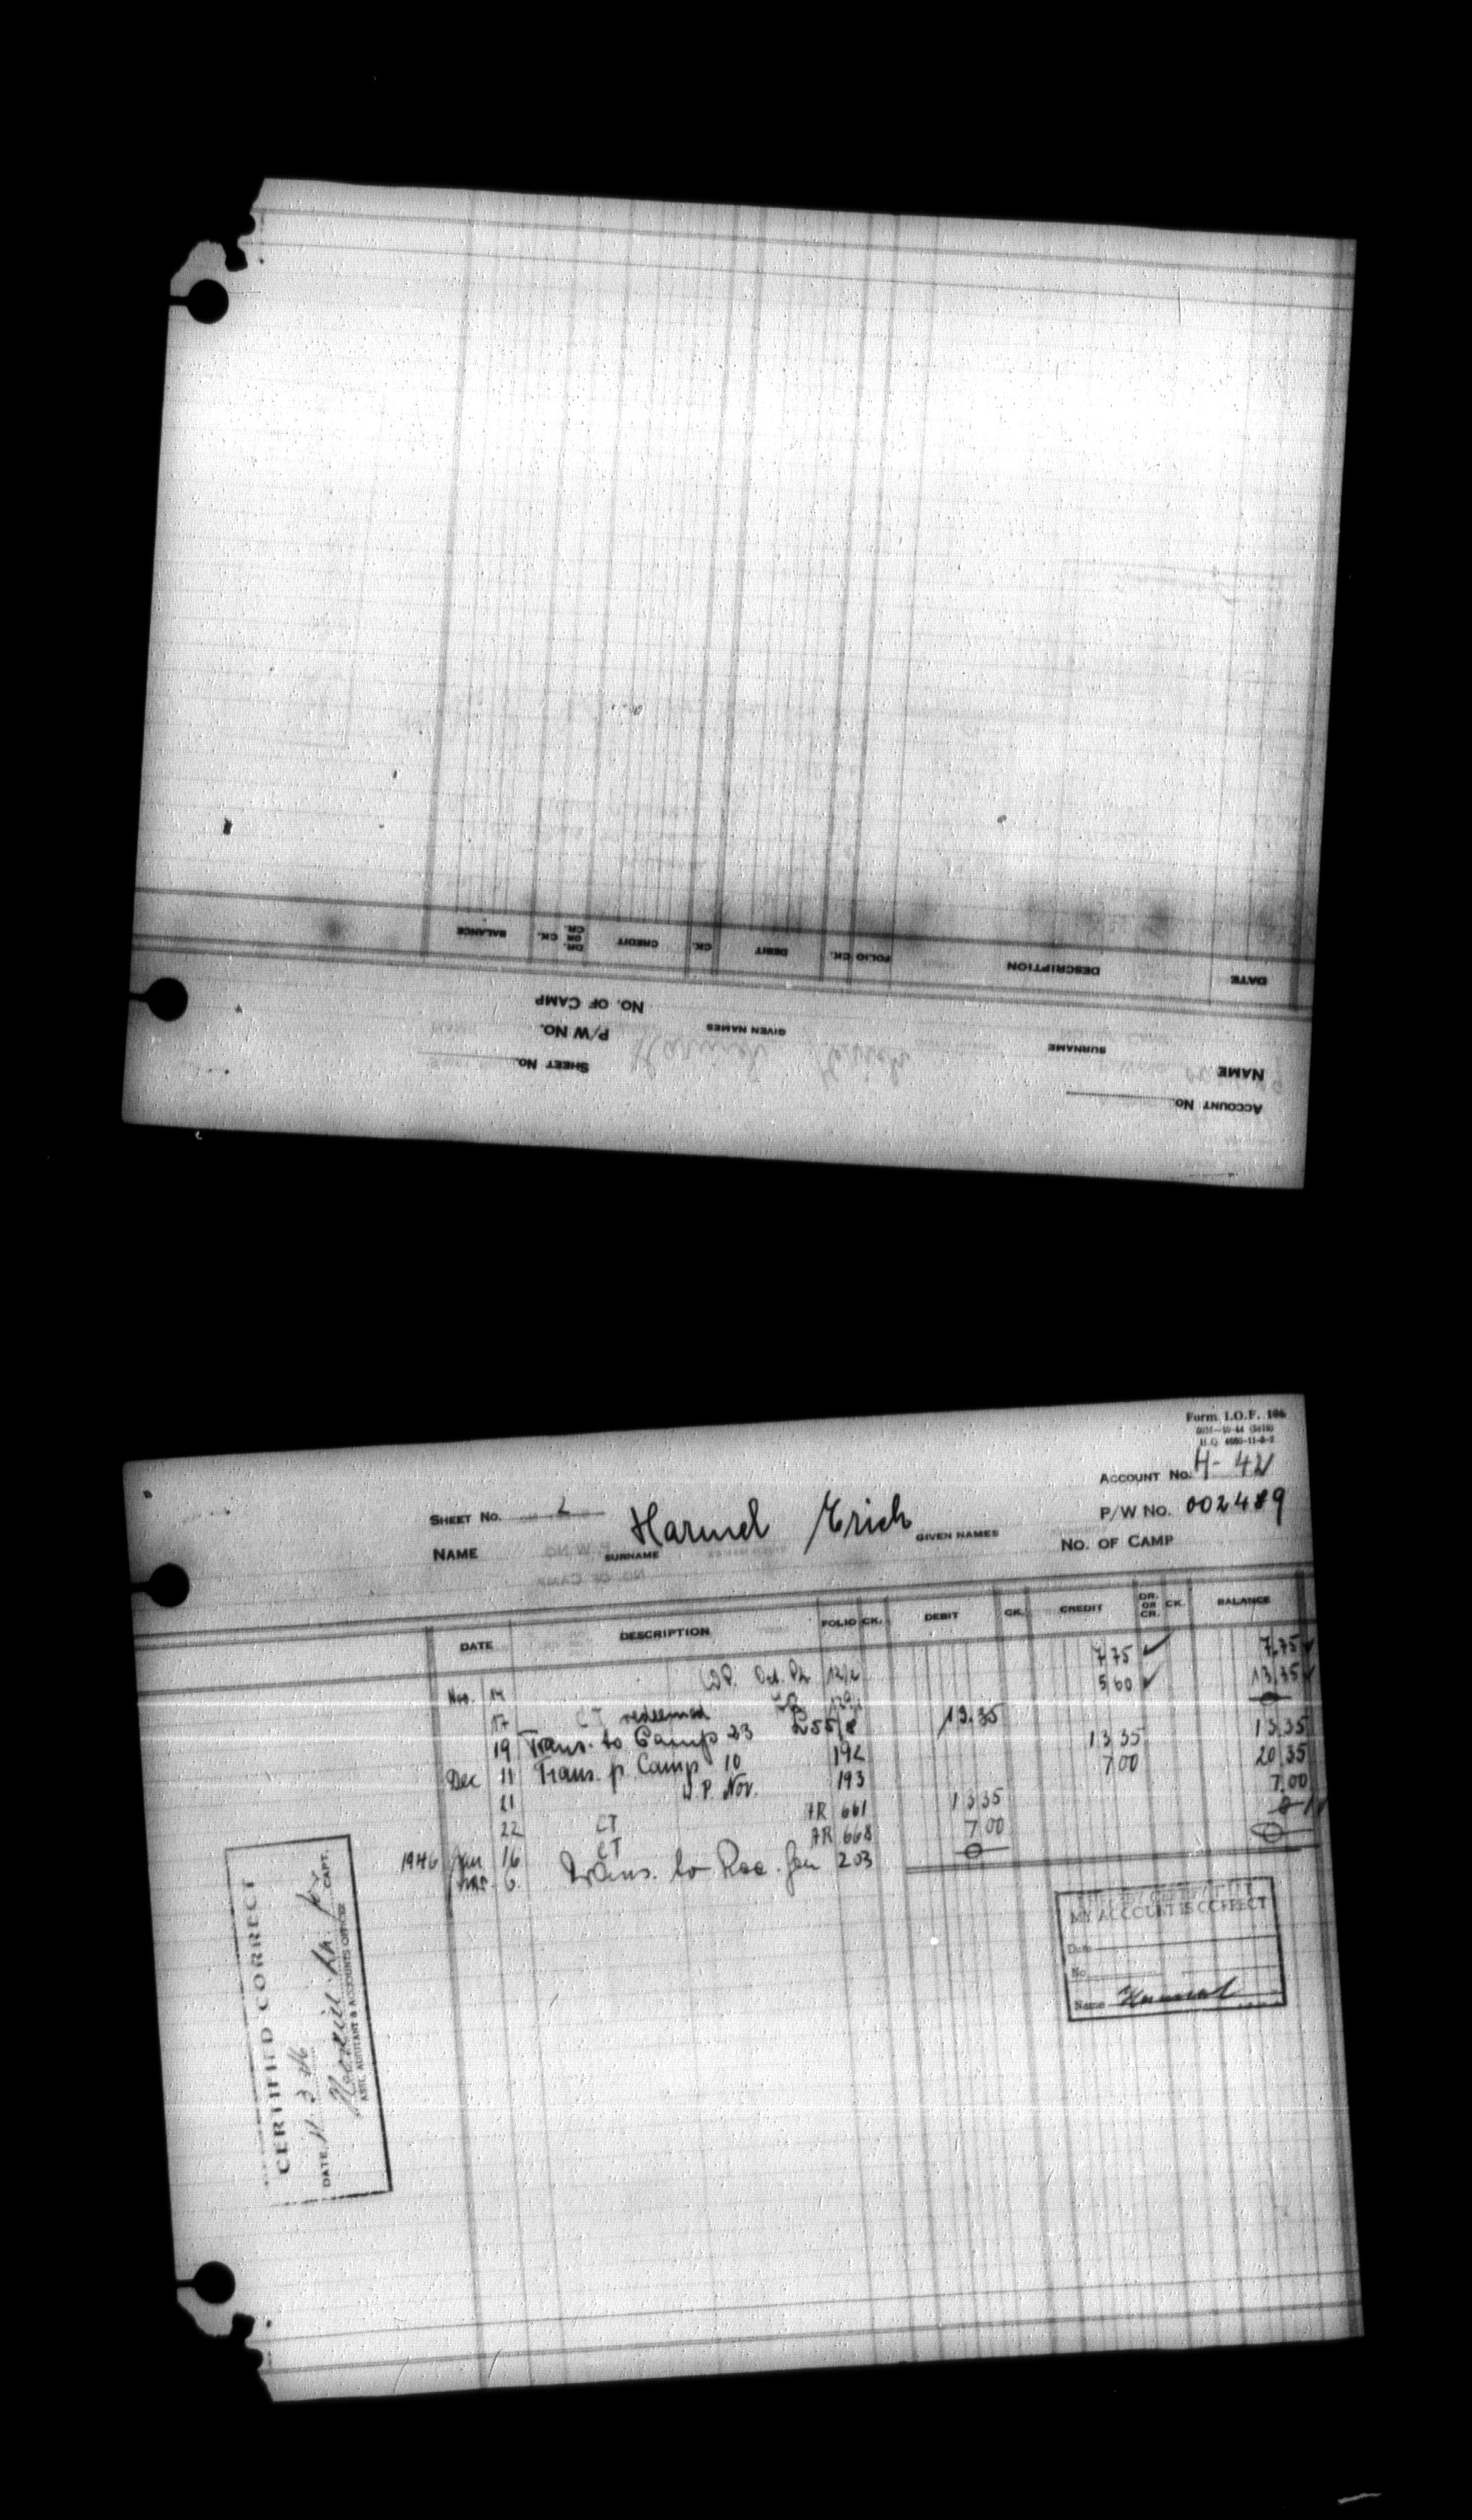 DATE
DESCRIPTION
FOLIO CK.
DEBIT
CK.
CREDIT
DR. OR CR.
CK.
BALANCE
ACCOUNT No.
NAME
SURNAME
GIVEN NAMES
SHEET No.
P/W No.
No. OF CAMP
Form I.O.F. 106
ACCOUNT No. H-42
SHEET No. 2
P/W No. 002489
NAME Harmel Erich
SURNAME GIVEN NAMES
No. OF CAMP
DATE DESCRIPTION FOLIO CK. DEBIT CK. CREDIT DR. OR CR. CK. BALANCE
Nov. 14 W.P. Oct. 7.75 ✓ 7.75 ✓
17 CT redeemed 5 60 ✓ 13.35 ✓
19 Trans. to Camp 23 13.35
Dec 11 Trans. p. Camp 10 192 13 35 13 35
21 W.P. Nov. 193 7 00 20 35
22 CT AR 661 13 35 7.00
1946 Jan 16 CT AR 668 7 00
6 Trans. to Rec. 203
MY ACCOUNT IS CORRECT
Date
No
Name Harmel
CERTIFIED CORRECT
DATE
CAPT.
ASST. ADJUTANT & ACCOUNTS OFFICER